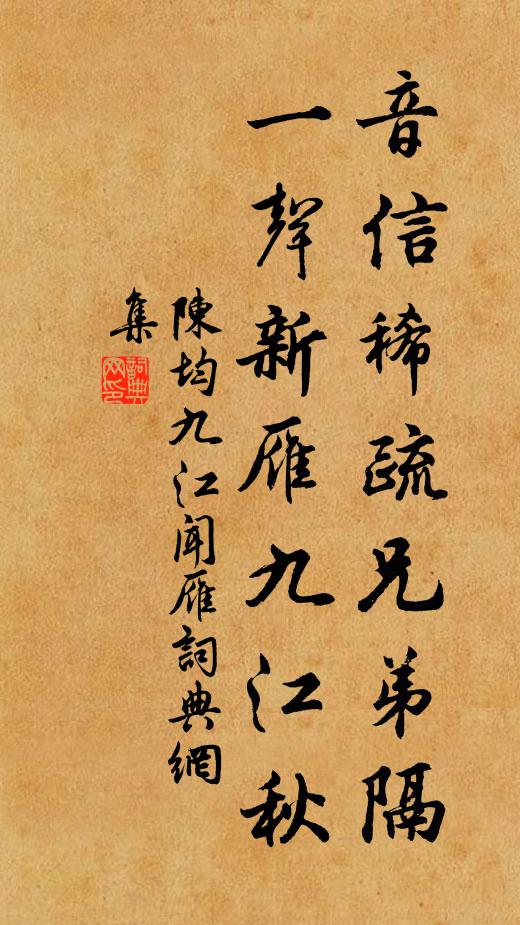 音信稀疏兄弟隔
一聲新雁九江秋
陳均九江聞雁詞典網
集
詞典
网印